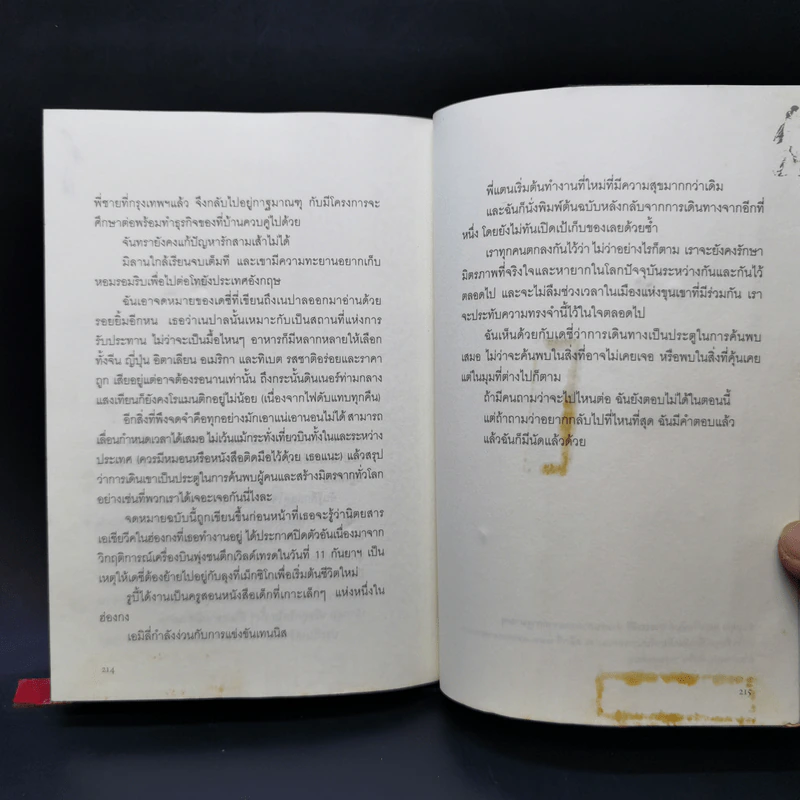 พี่ชายที่กรุงเทพฯแล้ว จึงกลับไปอยู่กาฐมาณฑุ กับมีโครงการจะ
ศึกษาต่อพร้อมทำธุรกิจของที่บ้านควบคู่ไปด้วย
จันทรายังคงแก้ปัญหารักสามเส้าไม่ได้
มิลานใกล้เรียนจบเต็มที และเขามีความทะยานอยากเก็บ
หอมรอมริบเพื่อไปต่อโทยังประเทศอังกฤษ
ฉันเอาจดหมายของเดซี่ที่เขียนถึงเนปาลออกมาอ่านด้วย
รอยยิ้มอีกหน เธอว่าเนปาลนั้นเหมาะกับเป็นสถานที่แห่งการ
รับประทาน ไม่ว่าจะเป็นมื้อไหนๆ อาหารก็มีหลากหลายให้เลือก
ทั้งจีน ญี่ปุ่น อิตาเลียน อเมริกา และทิเบต รสชาติอร่อยและราคา
ถูก เสียอยู่แต่อาจต้องรอนานเท่านั้น ถึงกระนั้นดินเนอร์ท่ามกลาง
แสงเทียนก็ยังคงโรแมนติกอยู่ไม่น้อย (เนื่องจากไฟดับแทบทุกคืน)
อีกสิ่งที่พึงจดจำคือทุกอย่างมักเอาแน่เอานอนไม่ได้ สามารถ
เลื่อนกำหนดเวลาได้เสมอ ไม่เว้นแม้กระทั่งเที่ยวบินทั้งในและระหว่าง
ประเทศ (ควรมีหมอนหรือหนังสือติดมือไว้ด้วย เธอแนะ) แล้วสรุป
ว่าการเดินเขาเป็นประตูในการค้นพบผู้คนและสร้างมิตรจากทั่วโลก
อย่างเช่นที่พวกเราได้เจอะเจอกันนี่ไงละ
จดหมายฉบับนี้ถูกเขียนขึ้นก่อนหน้าที่เธอจะรู้ว่านิตยสาร
เอเชียวีคในฮ่องกงที่เธอทำงานอยู่ ได้ประกาศปิดตัวอันเนื่องมาจาก
วิกฤติการณ์เครื่องบินพุ่งชนตึกเวิลด์เทรดในวันที่ 11 กันยาฯ เป็น
เหตุให้เดซี่ต้องย้ายไปอยู่กับลุงที่เม็กซิโกเพื่อเริ่มต้นชีวิตใหม่
รูบี้ได้งานเป็นครูสอนหนังสือเด็กที่เกาะเล็กๆ แห่งหนึ่งใน
ฮ่องกง
เอมิลี่กำลังง่วนกับการแข่งขันเทนนิส
214
พี่แตนเริ่มต้นทำงานที่ใหม่ที่มีความสุขมากกว่าเดิม
และฉันก็นั่งพิมพ์ต้นฉบับหลังกลับจากการเดินทางจากอีกที่
หนึ่ง โดยยังไม่ทันเปิดเป้เก็บของเลยด้วยซ้ำ
เราทุกคนตกลงกันไว้ว่า ไม่ว่าอย่างไรก็ตาม เราจะยังคงรักษา
มิตรภาพที่จริงใจและหายากในโลกปัจจุบันระหว่างกันและกันไว้
ตลอดไป และจะไม่ลืมช่วงเวลาในเมืองแห่งขุนเขาที่มีร่วมกัน เรา
จะประทับความทรงจำนี้ไว้ในใจตลอดไป
ฉันเห็นด้วยกับเดซี่ว่าการเดินทางเป็นประตูในการค้นพบ
เสมอ ไม่ว่าจะค้นพบในสิ่งที่อาจไม่เคยเจอ หรือพบในสิ่งที่คุ้นเคย
แต่ในมุมที่ต่างไปก็ตาม
ถ้ามีคนถามว่าจะไปไหนต่อ ฉันยังตอบไม่ได้ในตอนนี้
แต่ถ้าถามว่าอยากกลับไปที่ไหนที่สุด ฉันมีคำตอบแล้ว
แล้วฉันก็มีนัดแล้วด้วย
215